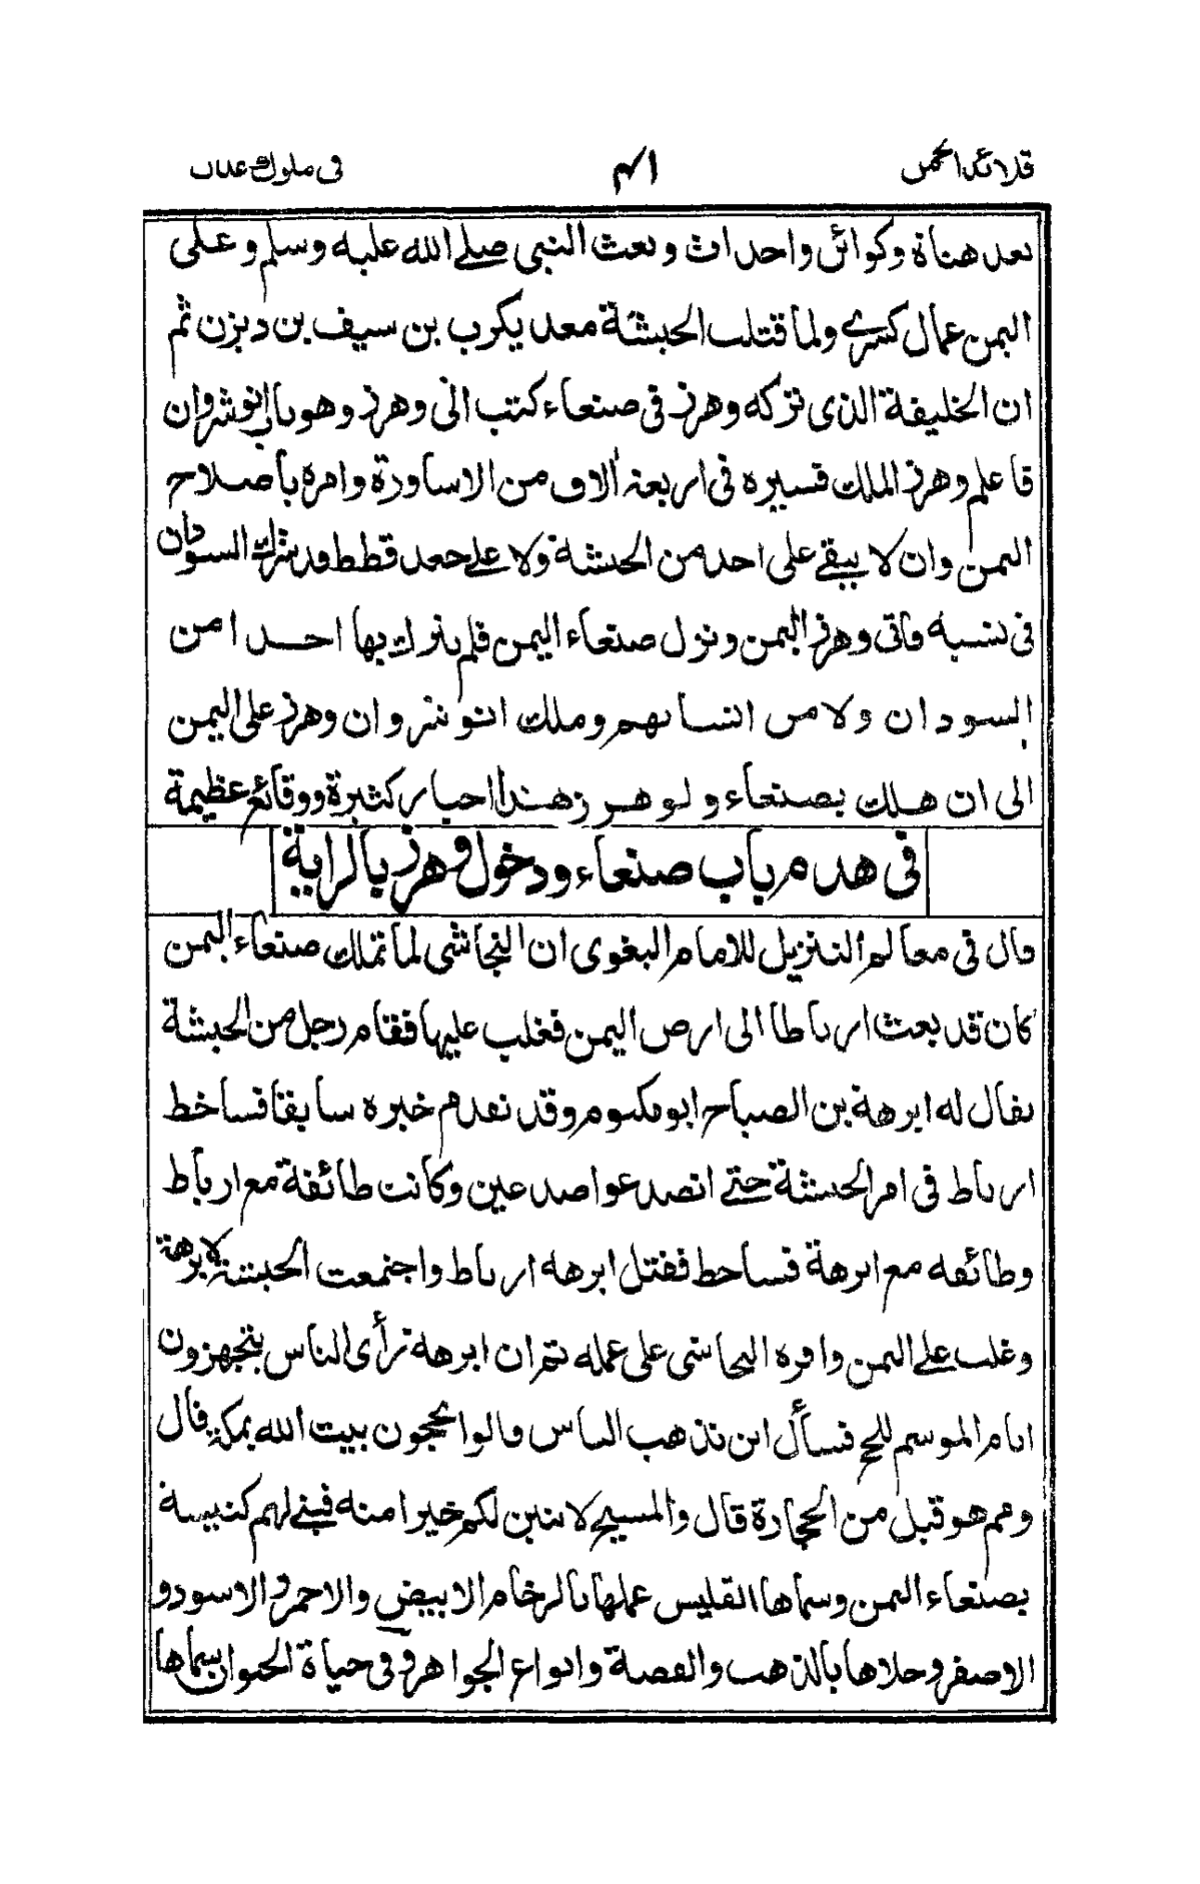 قلائد الجمن ٤١ فى ملوك عدن
بعد هناة وكوائن واحداث وبعث النبى صلے الله عليه وسلم وعلى
اليمن عمال كسرے ولما قتلت الحبشة معد يكرب بن سيف بن ديزن ثم
ان الخليفة الذى تركه وهرز فى صنعاء كتب الى وهرز وهو بباب انوشروان
فاعلم وهرز الملك فسيره فى اربعة آلاف من الاساورة وامره باصلاح
اليمن وان لا يبقے على احد من الحبشة ولا علے جعد قطط قد شرك السودان
فى نسبه فاتى وهرز اليمن ونزل صنعاء اليمن فلم يترك بها احدا من
السودان ولا من انسابهم وملك انوشروان وهرز على اليمن
الى ان هلك بصنعاء ولوهرز هذا اخبار كثيرة ووقائع عظيمة
فى هدم باب صنعاء ودخول وهرز بالراية
قال فى معالم التنزيل للامام البغوى ان النجاشى لما تملك صنعاء اليمن
كان قد بعث ارباطا الى ارض اليمن فغلب عليها فقام رجل من الحبشة
يقال له ابرهة بن الصباح ابو مكسوم وقد تقدم خبره سابقا فساخط
ارباط فى امر الحبشة حتے انصدعوا صدعين وكانت طائفة مع ارباط
وطائفه مع ابرهة فساخط فقتل ابرهه ارباط واجتمعت الحبشة لابرهة
وغلب علے اليمن واقره النجاشى على عمله ثم ان ابرهة ترأى الناس يتجهزون
ايام الموسم للحج فسأل اين تذهب الناس قالوا يحجون بيت الله بمكة قال
ومم هو قيل من الحجارة قال والمسيح لابنين لكم خيرا منه فبنے لهم كنيسة
بصنعاء اليمن وسماها القليس عملها بالرخام الابيض والاحمر والاسود و
الاصفر وحلاها بالذهب والفضة وانواع الجواهر وفى حياة الحيوان سماها